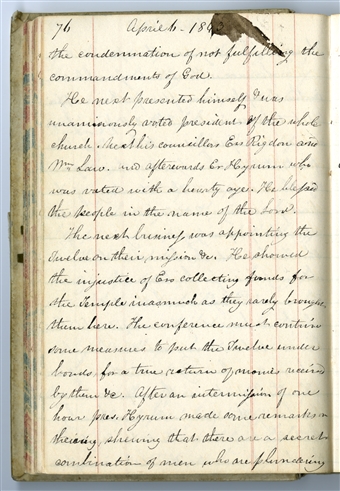 76 April 6 - 184
the condemnation of not fulfilling the
commandments of God.
He next presented himself & was
unanimously voted president of the whole
church. Next his councillors Ers Rigdon and
Wm Law. and afterwards Er Hyrum who
was voted with a hearty aye. He blessed
the people in the name of the Lord.
The next business was appointing the
twelve on their mission &c. He showed
the injustice of Ers collecting funds for
the Temple inasmuch as they rarely brought
them here. The conference must contrive
some measures to put the Twelve under
bonds, for a true return of monies received
by them &c. After an intermission of one
hour pres. Hyrum made some remarks on
thieving shewing that there are a secret
combination of men who are plundering